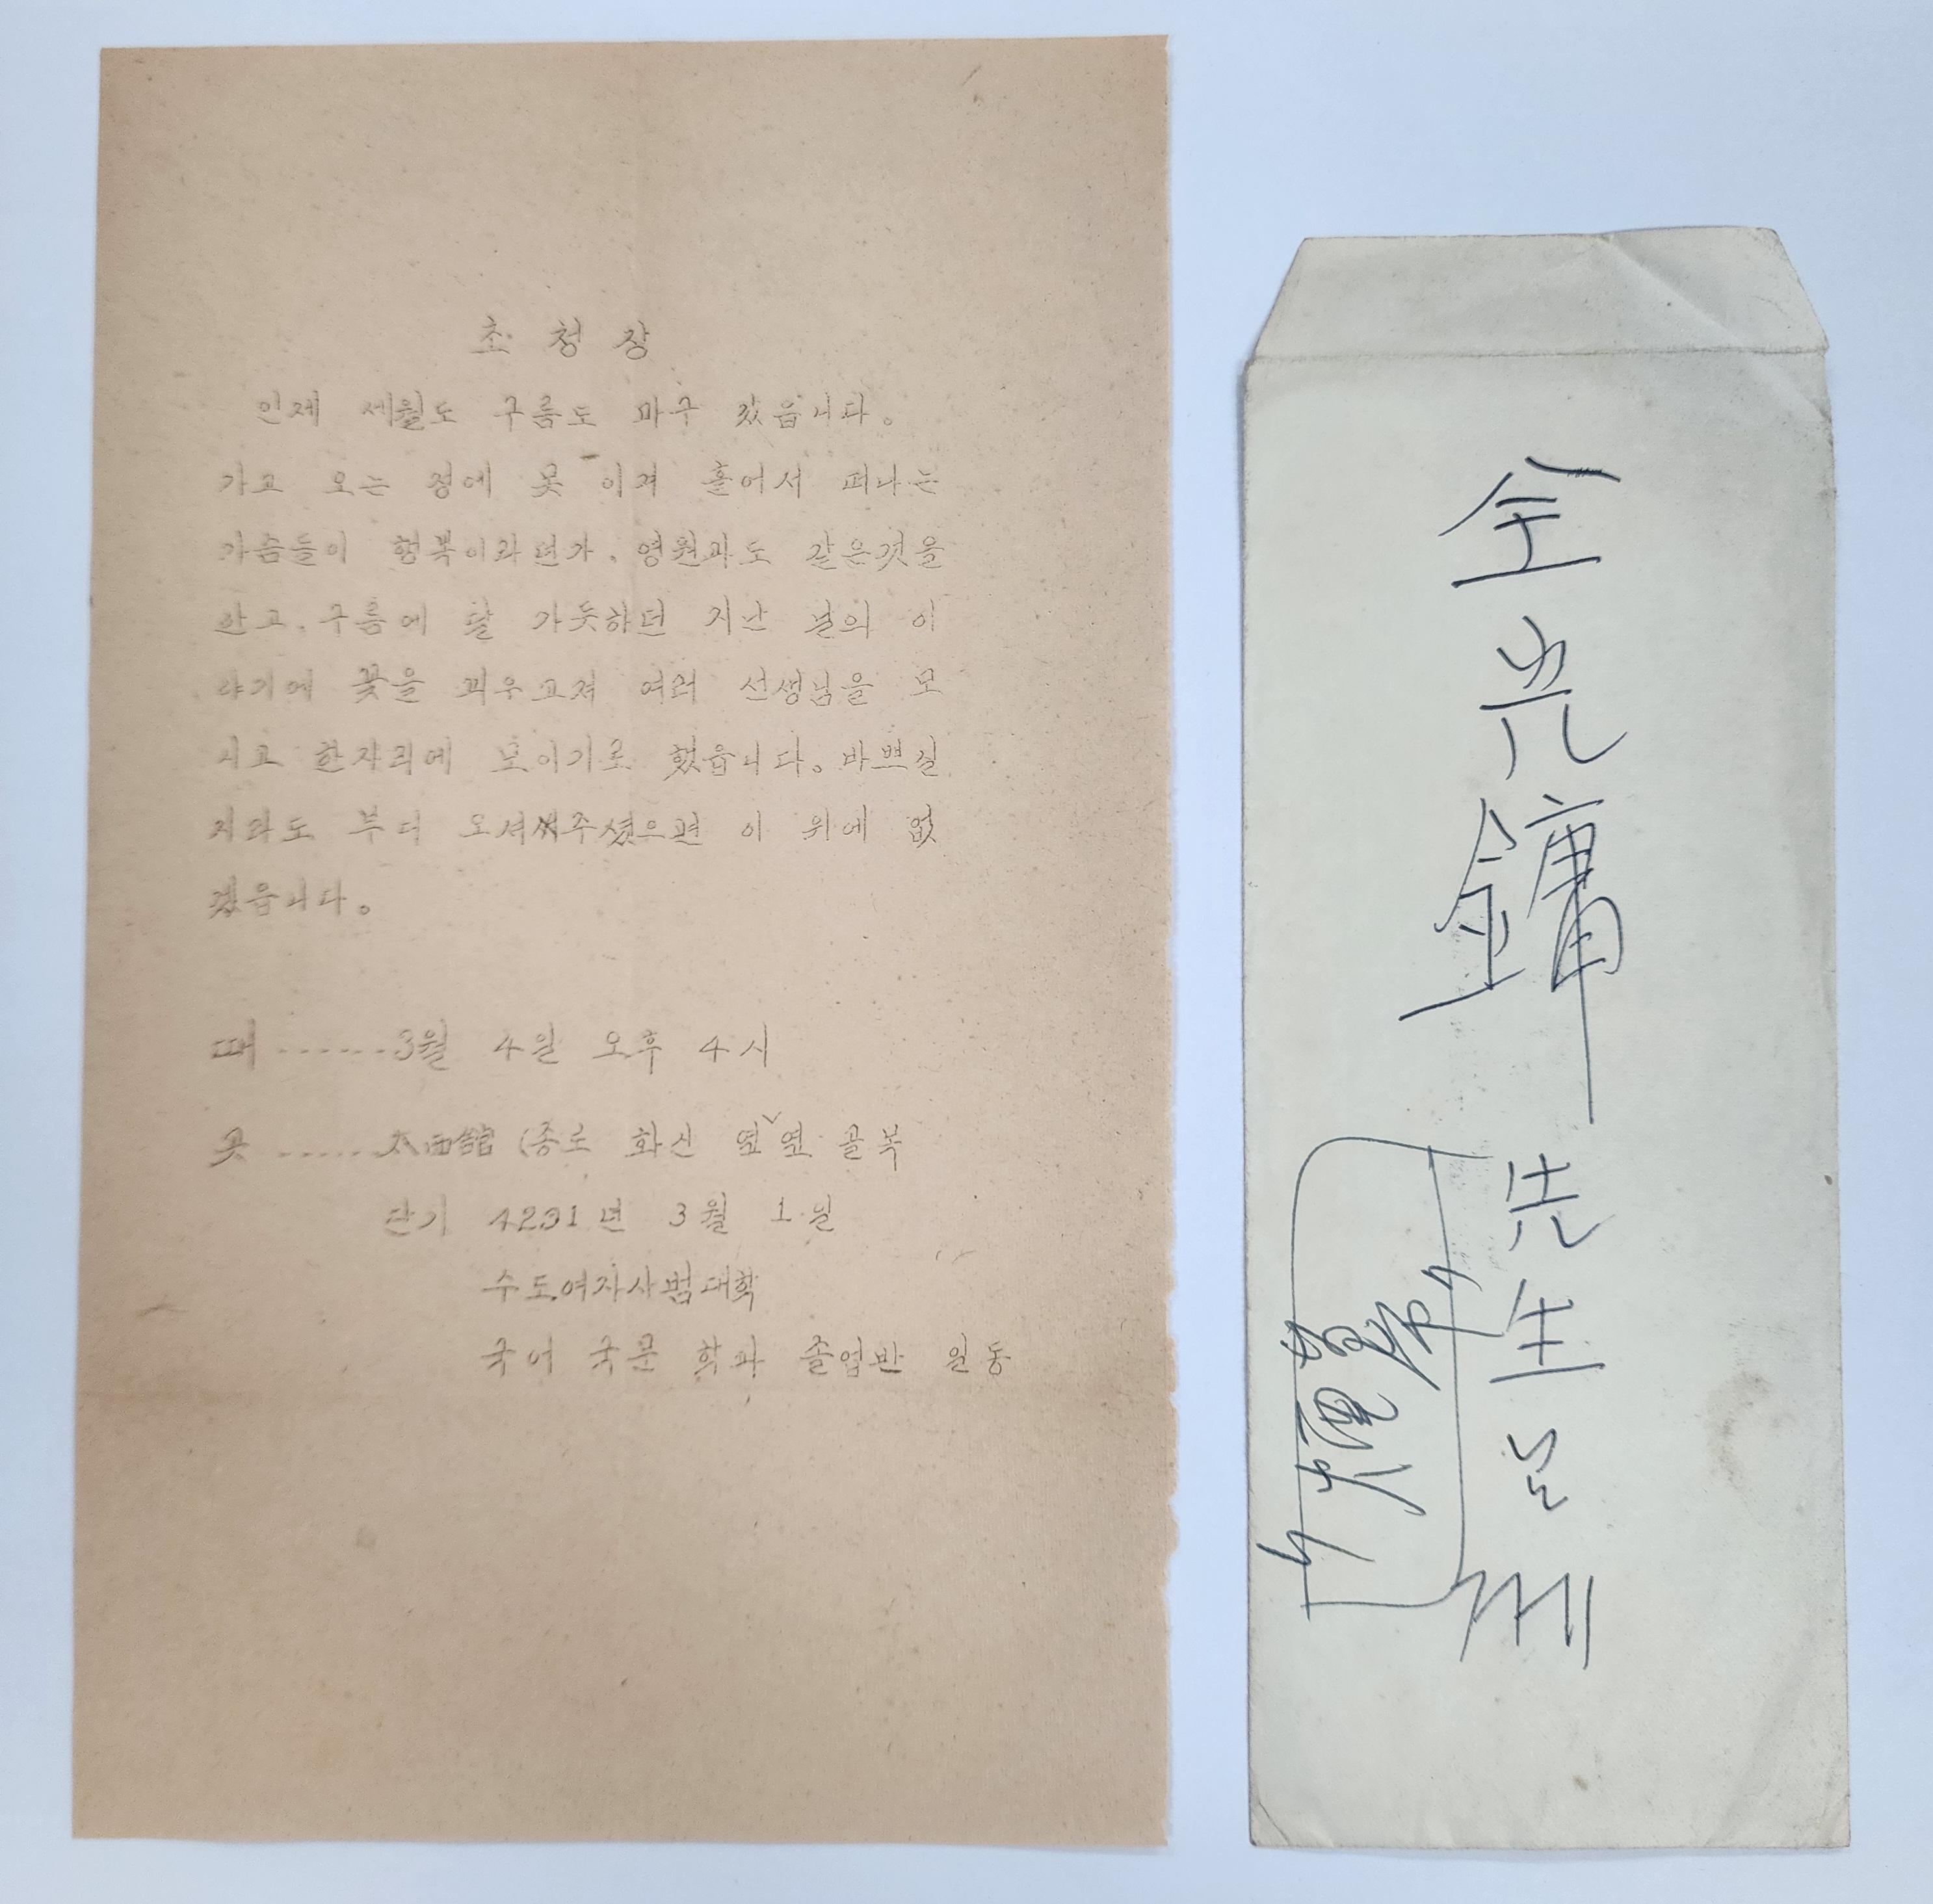 초청장
인제 세월도 구름도 마구 갔읍니다。
가고 오는 정에 못 이겨 흩어서 떠나는
가슴들이 행복이라면가. 영원과도 같은것을
한고. 구름에 달 가듯하던 지난 날의 이
야기에 꽃을 피우고져 여러 선생님을 모
시고 한자리에 모이기로 했읍니다。바쁘실
지라도 부디 오셔주셨으면 이 위에 없
겠읍니다。
때 ......3월 4일 오후 4시
곳 ......太西館 (종로 화신 옆 옆 골목
단기 4291년 3월 1일
수도여자사범대학
국어 국문 학과 졸업반 일동
全光鏞 先生님께